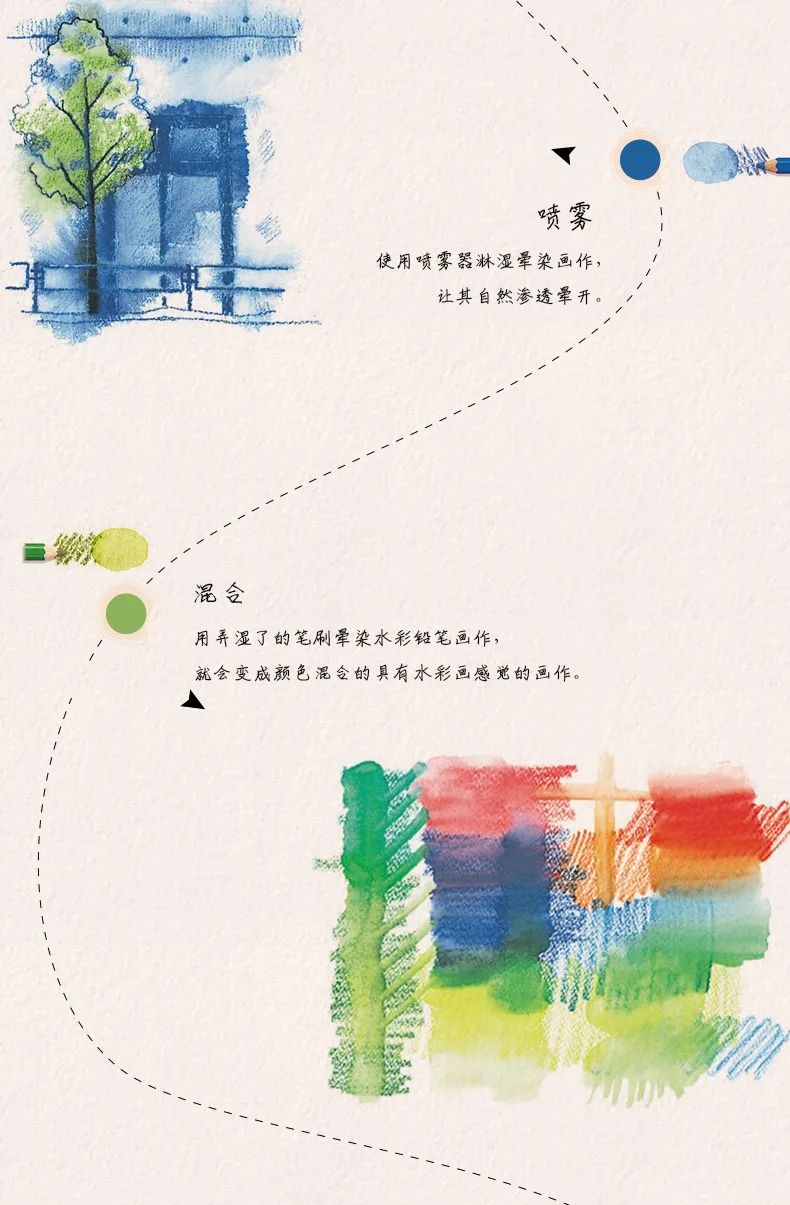 喷雾
使用喷雾器淋湿晕染画作，
让其自然渗透晕开。
混合
用弄湿了的笔刷晕染水彩铅笔画作，
就会变成颜色混合的具有水彩画感觉的画作。